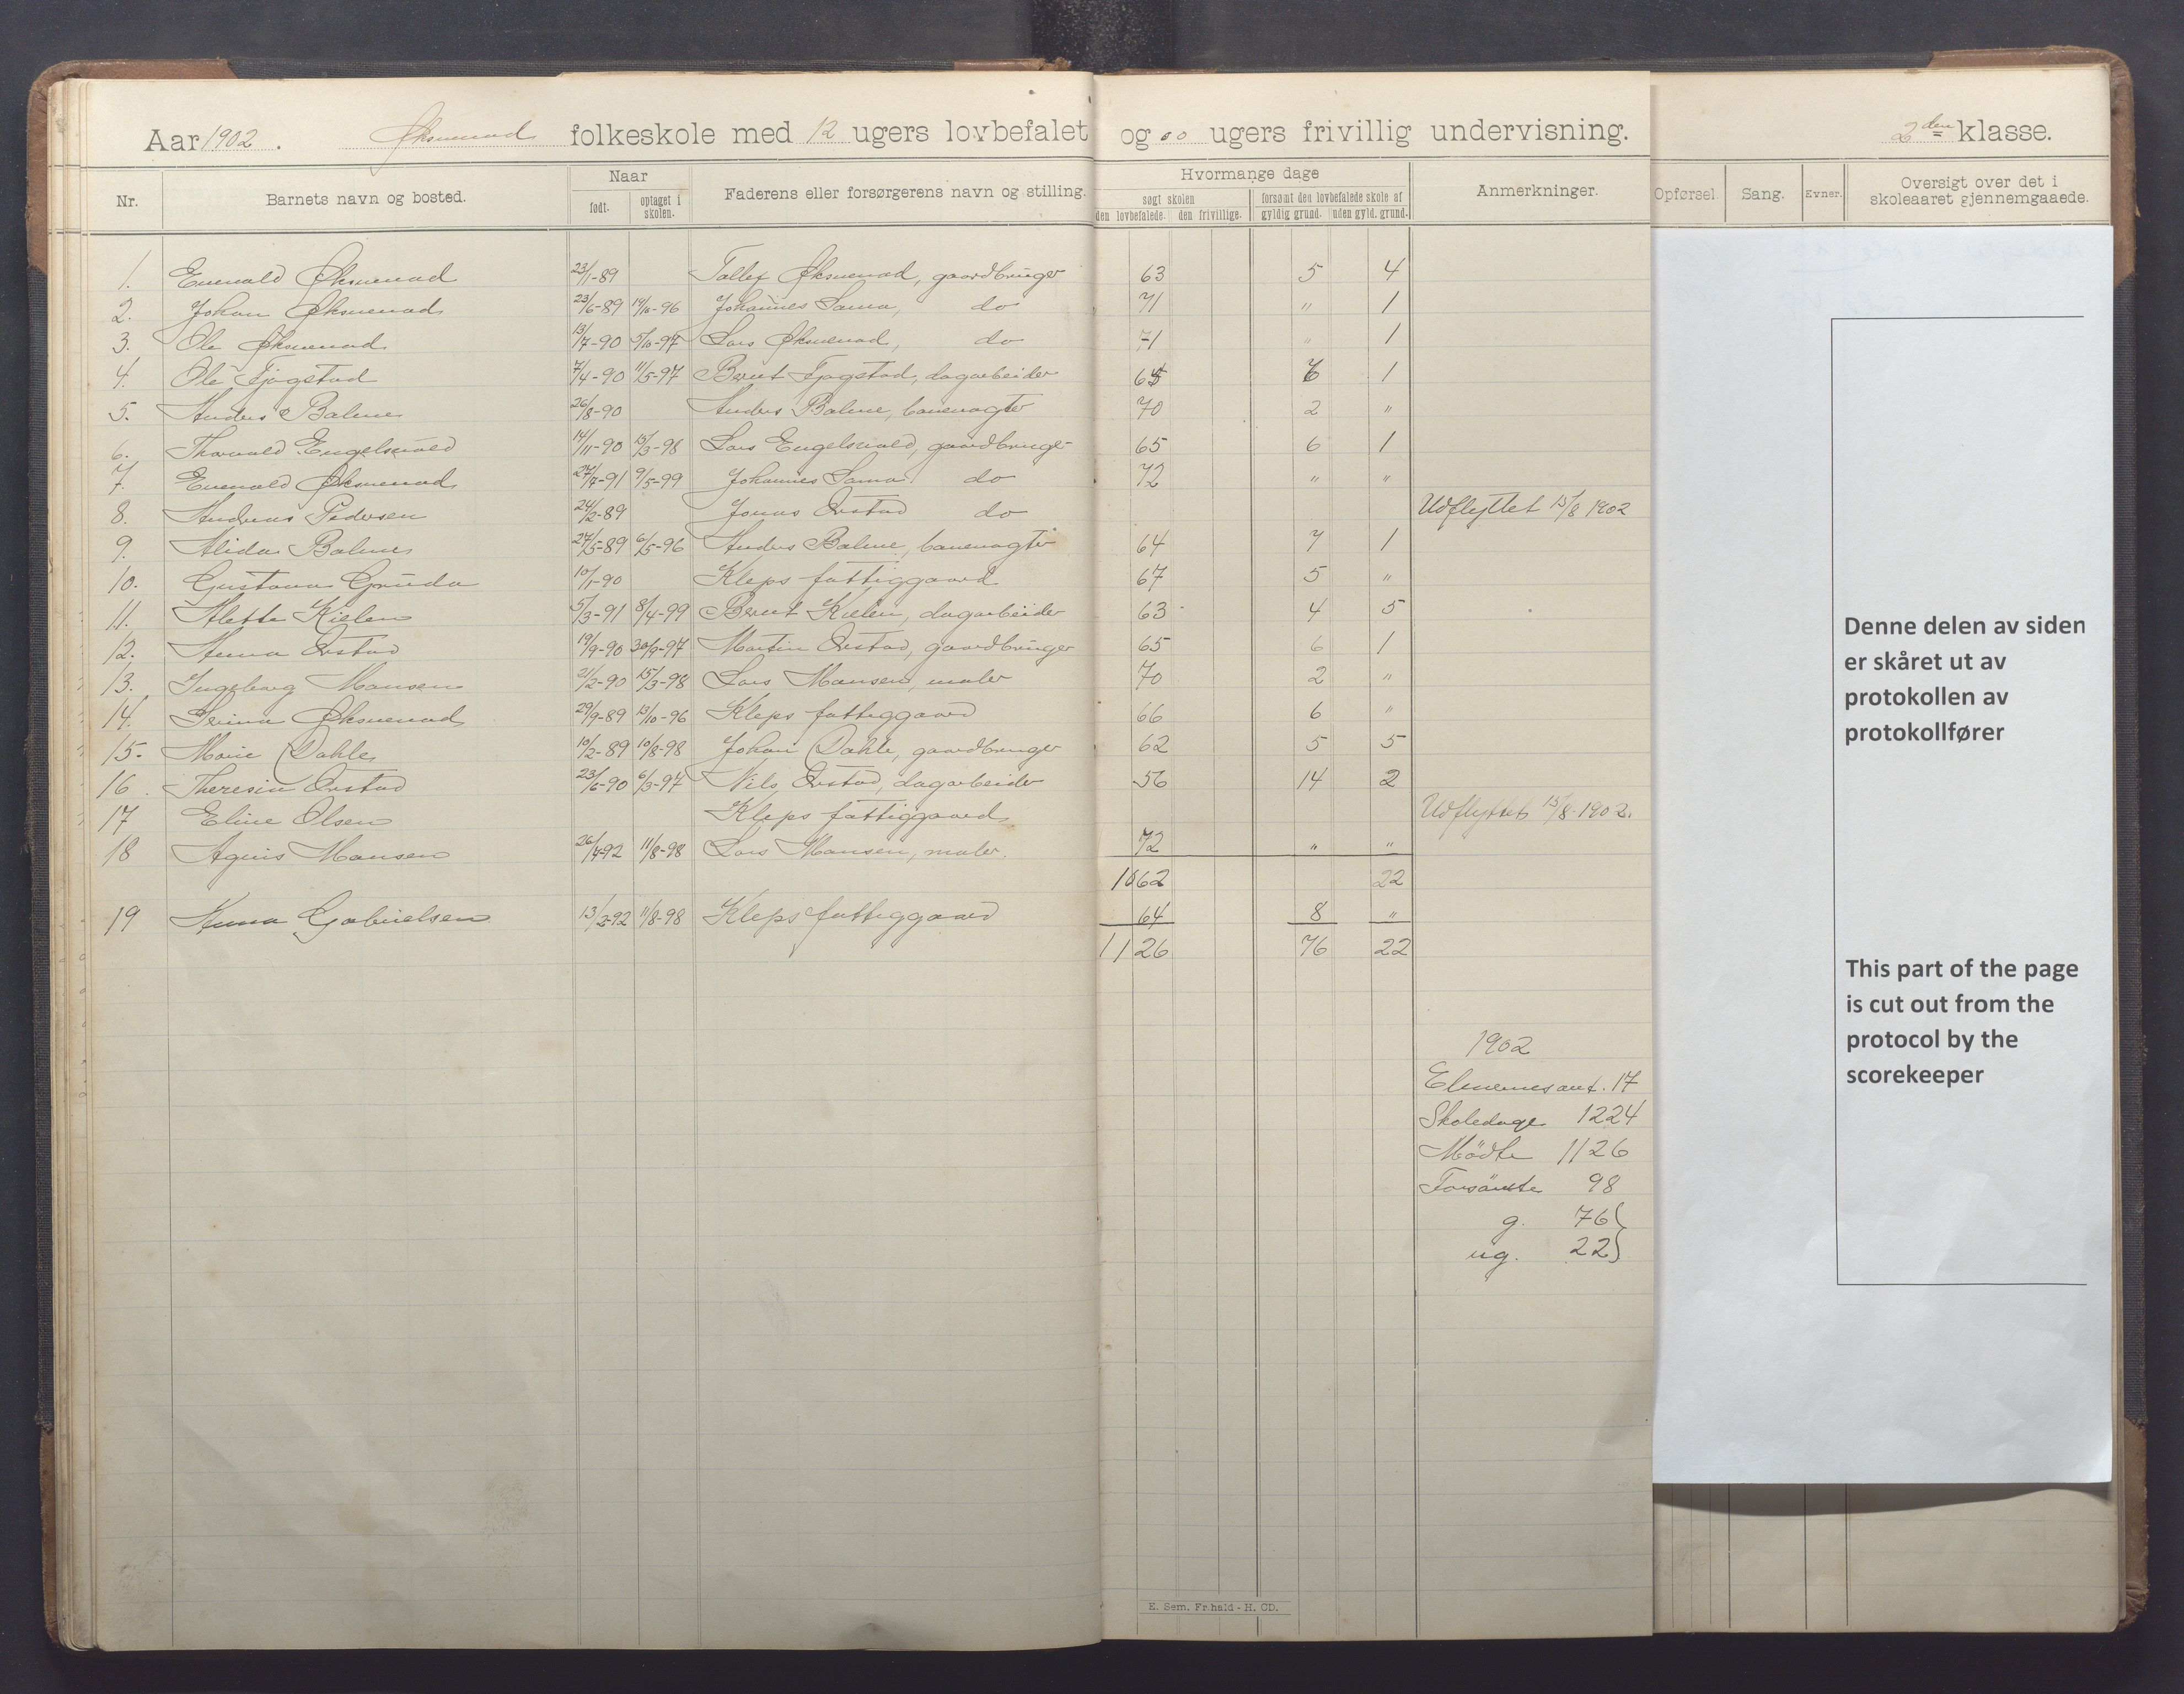 Aar 1902. Øksnevad folkeskole med 12 ugers lovbefalet og 00 ugers frivillig undervisning. 2den klasse.
Nr. Barnets navn og bosted. Naar født. optaget i skolen. Faderens eller forsørgerens navn og stilling. Hvormange dage søgt skolen den lovbefalede. den frivillige. forsømt den lovbefalede skole af gyldig grund. uden gyld. grund. Anmerkninger. Opførsel. Sang. Evner. Oversigt over det i skoleaaret gjennemgaaede.
1. Enevald Øksnevad 23/1-89 Tollef Øksnevad, gaardbruger 63 5 4
2. Johan Øksnevad 23/6-89 19/10-96 Johannes Sama, do 71 " 1
3. Ole Øksnevad 13/7-90 5/10-97 Lars Øksnevad, do 71 " 1
4. Ole Fjogstad 7/4-90 11/5-97 Bernt Fjogstad, dagarbeider 1
5. Anders Balme 26/8-90 Anders Balme, banevogter 70 2 "
6. Thorvald Engelsvold 14/11-90 15/3-98 Lars Engelsvold, gaardbruger 65 6 1
7. Enevald Øksnevad 27/4-91 9/5-99 Johannes Sama do 72 " "
8. Andreas Pedersen 24/2-89 Jonas Orstad do Udflyttet 15/8 1902
9. Alida Balme 27/5-89 6/5-96 Anders Balme, banevogter 64 7 1
10. Gustava Gruda 10/1-90 Kleps fattiggaard 67 5 "
11. Alette Kielen 5/3-91 8/4-99 Bernt Kielen, dagarbeider 63 4 5
12. Anna Orstad 19/9-90 30/9-97 Martin Orstad, gaardbruger 65 6 1
13. Ingeborg Mansen 21/2-90 15/3-98 Lars Mansen, maler 70 2 "
14. Serina Øksnevad 29/9-89 13/10-96 Kleps fattiggaard 66 6 "
15. Marie Dahle 10/2-89 10/8-98 Johan Dahle, gaardbruger 62 5 5
16. Theresia Orstad 23/6-90 6/3-97 Nils Orstad, dagarbeider 56 14 2
17 Eline Olsen Kleps fattiggaard Udflyttet 15/8-1902.
18 Agnis Mansen 26/4-92 11/8-98 Lars Mansen, maler. 72 " "
1062 22
19 Anna Gabrielsen 13/2-92 11/8-98 Kleps fattiggaard 64 8 "
1126 76 22
1902
Elevernes ant. 17
Skoledage 1224
Mødte 1126
Forsømte 98
g. 76
ug. 22
E. Sem. Fr.hald - H. CD.
Denne delen av siden
er skåret ut av
protokollen av
protokollfører
This part of the page
is cut out from the
protocol by the
scorekeeper